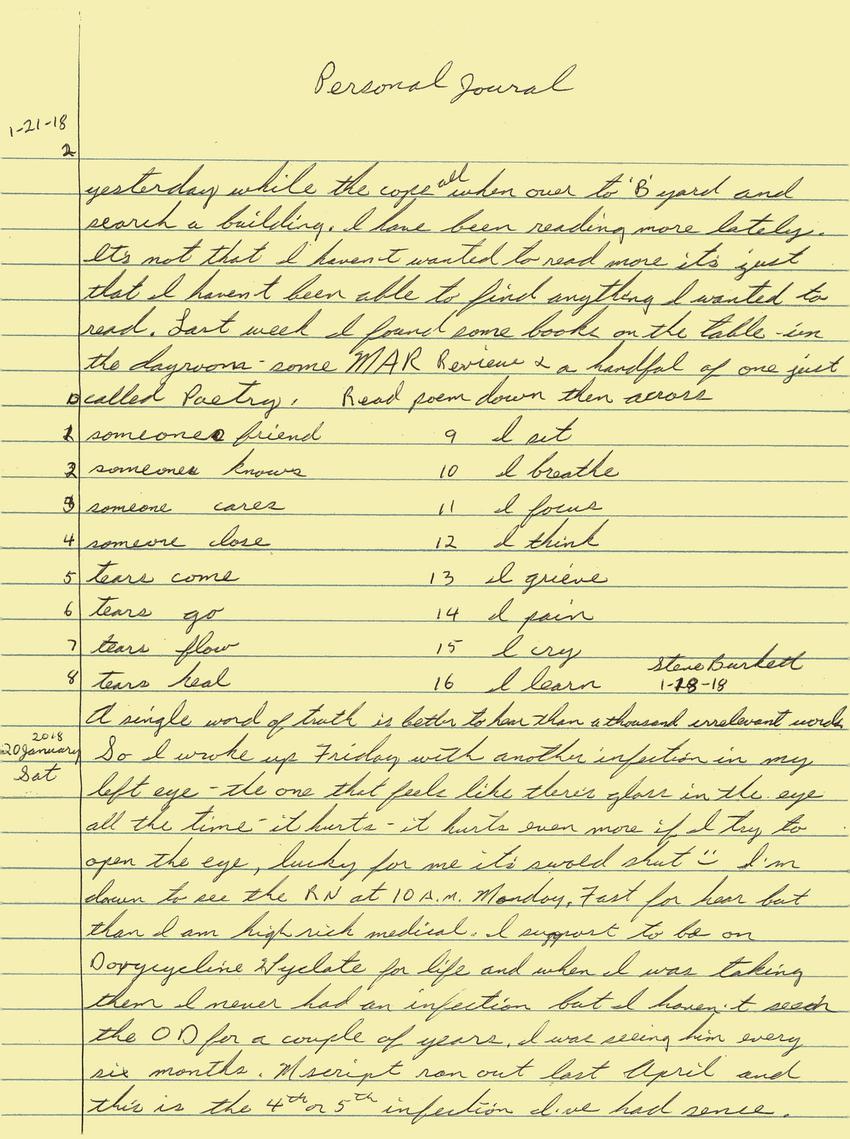 Personal Joural
1-21-18
2
yesterday while the cops all when over to 'B' yard and
search a building. I have been reading more lately.
It's not that I haven't wanted to read more it's just
that I haven't been able to find anything I wanted to
read. Last week I found some books on the table - in
the dayroom - some MAR Review & a handful of one just
called Poetry. Read poem down then across
1 someones friend 9 I sit
2 someones knows 10 I breathe
3 someone cares 11 I focus
4 someone close 12 I think
5 tears come 13 I grieve
6 tears go 14 I pain
7 tears flow 15 I cry
8 tears heal 16 I learn Steve Burkett
1-18-18
A single word of truth is better to hear than a thousand irrelevant words
2018
20 January
Sat
So I wroke up Friday with another infection in my
left eye - the one that feels like there's glass in the eye
all the time - it hurts - it hurts even more if I try to
open the eye, lucky for me it's swold shut I'm
down to see the RN at 10 A.M. Monday, Fast for hear but
than I am high rick medical. I support to be on
Doxycycline Hyclate for life and when I was taking
them I never had an infection but I haven't seen
the OD for a couple of years. I was seeing him every
six months. M script ran out last April and
this is the 4th or 5th infection I've had sence.